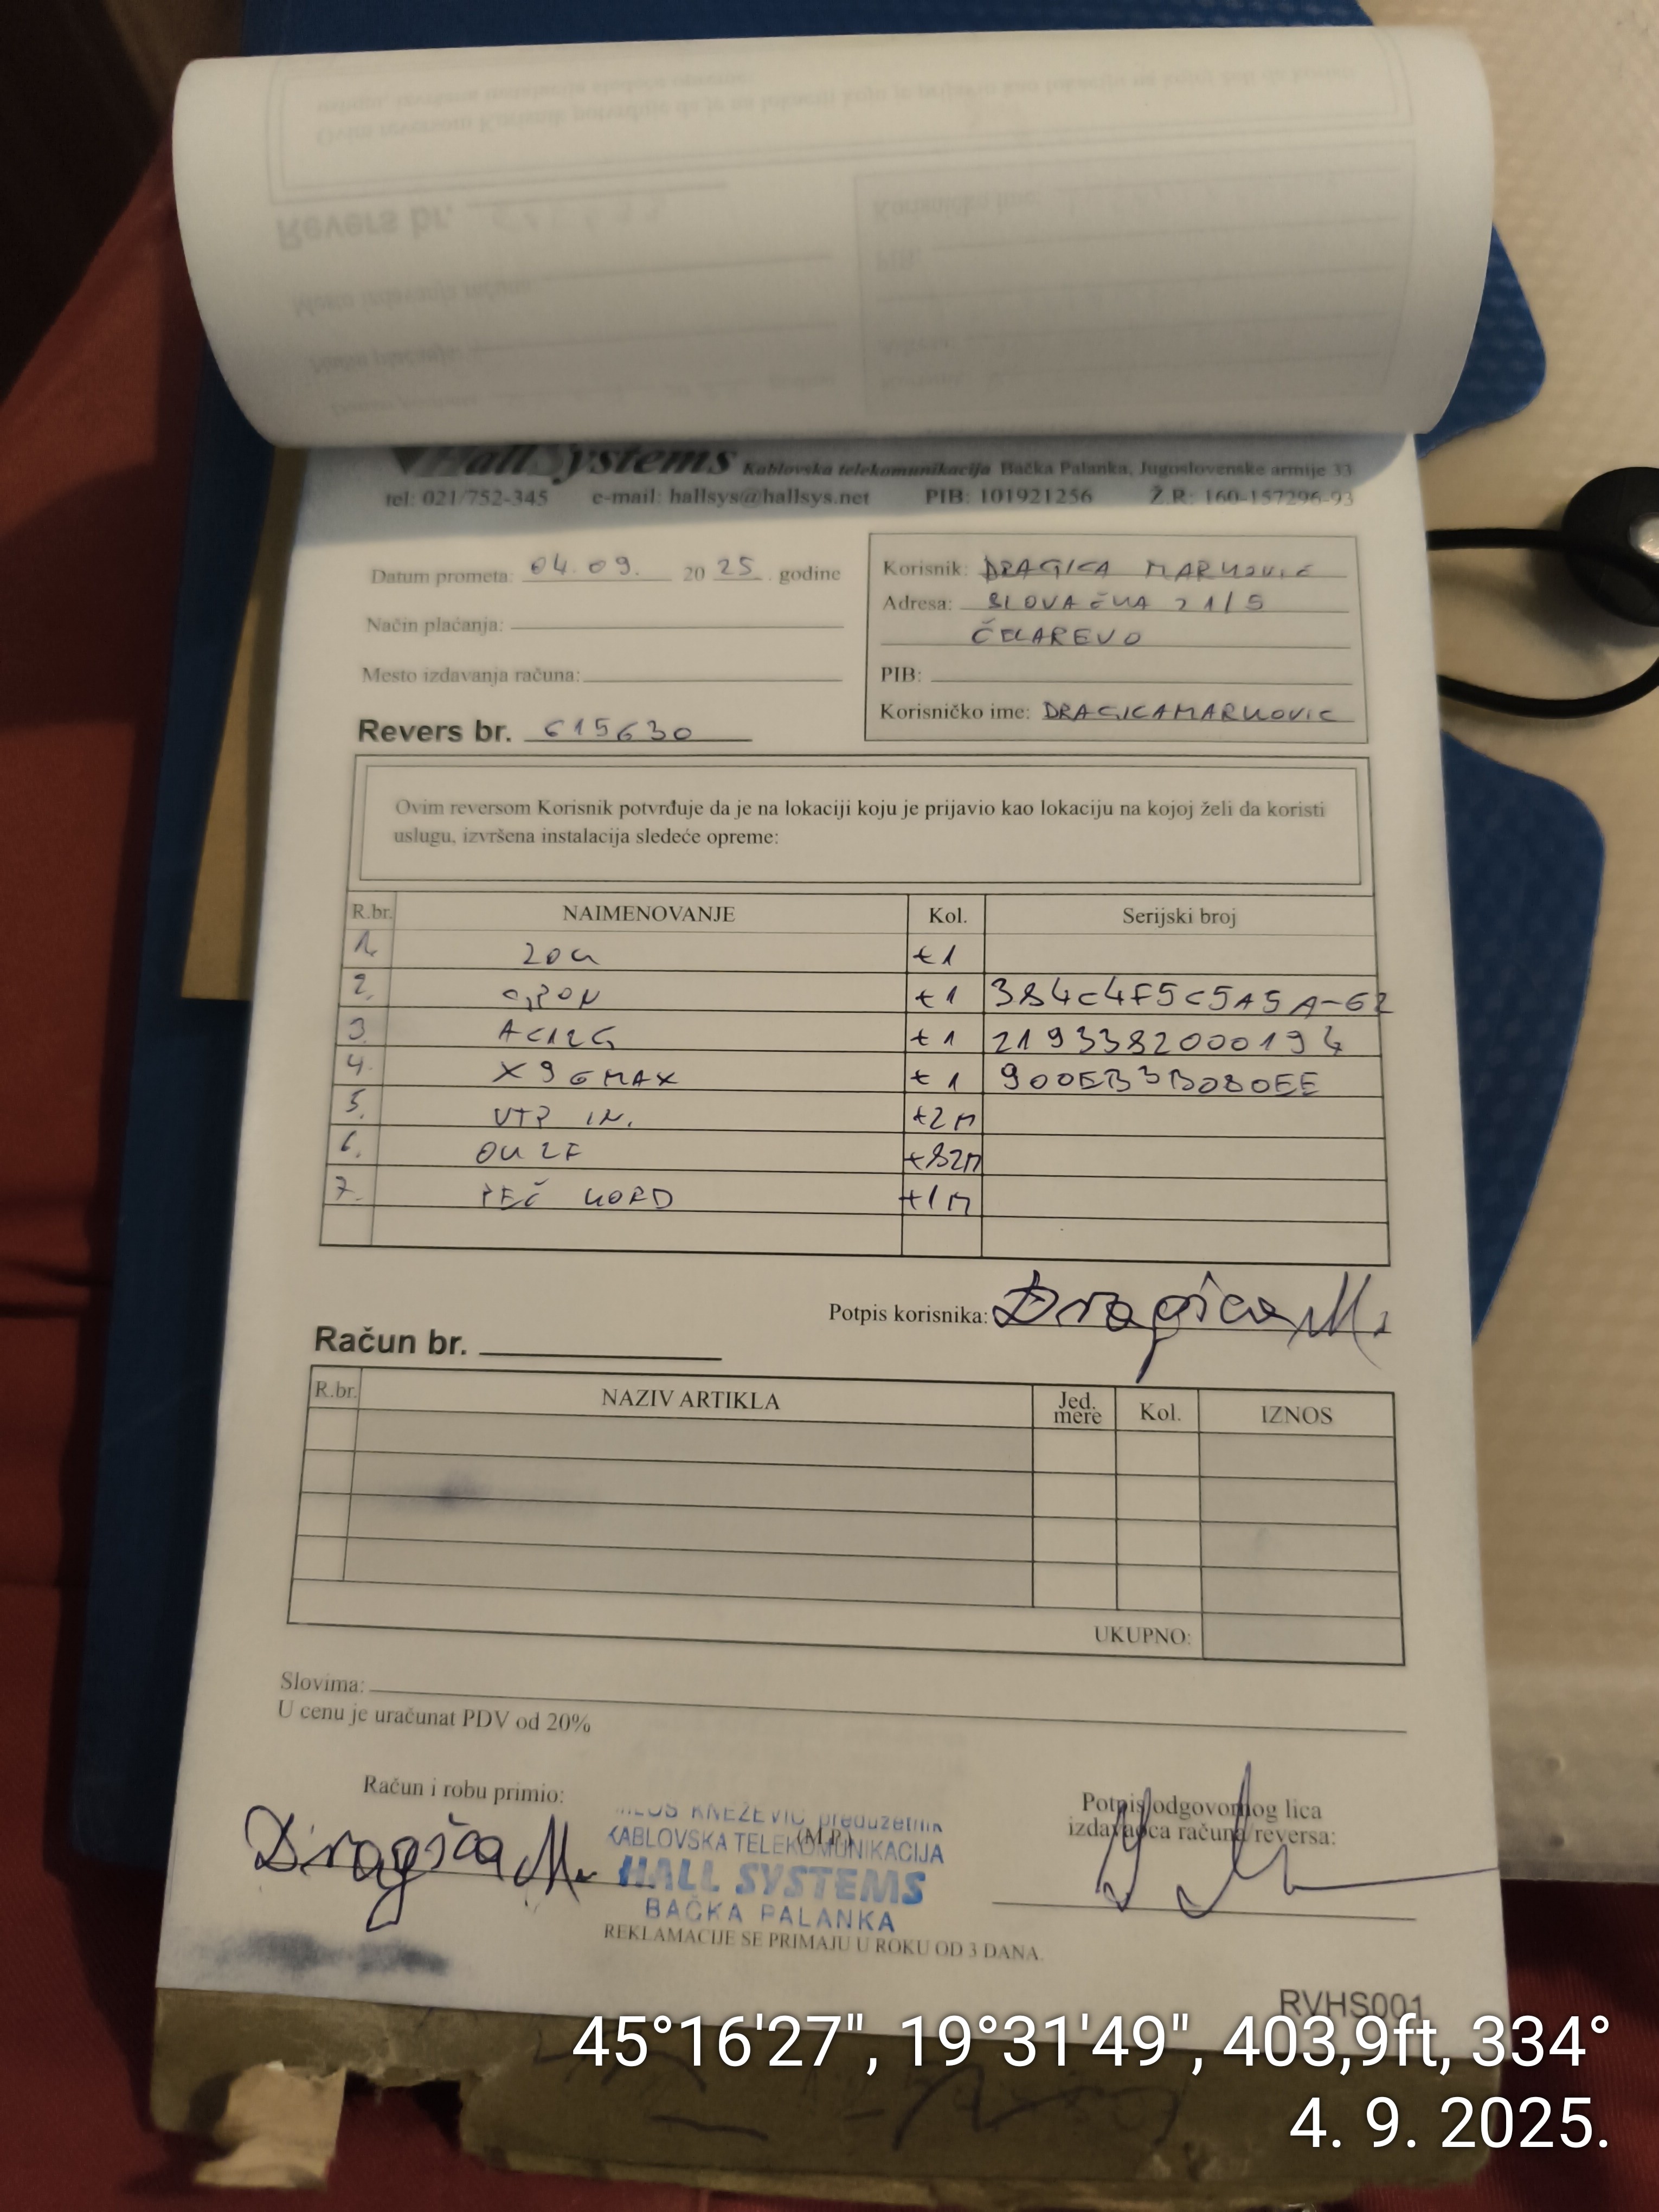 HallSystems Kablovska telekomunikacija Bačka Palanka, Jugoslovenske armije 33
tel: 021/752-345 e-mail: hallsys@hallsys.net PIB: 101921256 Ž.R: 160-157296-93
Datum prometa: 04.09. 2025. godine
Korisnik: DRAGICA MARKOVIĆ
Način plaćanja:
Adresa: SLOVAČKA 21/5
ČELAREVO
Mesto izdavanja računa:
PIB:
Revers br. 615630
Korisničko ime: DRAGICAMARKOVIC
Ovim reversom Korisnik potvrđuje da je na lokaciji koju je prijavio kao lokaciju na kojoj želi da koristi
uslugu, izvršena instalacija sledeće opreme:
R.br. NAIMENOVANJE Kol. Serijski broj
1. ZOK +1
2. GPON +1 384C4F5C5A5A-62
3. AC12G +1 2193382000194
4. X96MAX +1 900EB3B080EE
5. UTP IN. +2M
6. OK 2F +82M
7. PEČ KORD +1M
Potpis korisnika: Dragica M.
Račun br.
R.br. NAZIV ARTIKLA Jed. mere Kol. IZNOS
UKUPNO:
Slovima:
U cenu je uračunat PDV od 20%
Račun i robu primio:
Dragica M.
KNEŽEVIĆ preduzetnik
(M.P.)
KABLOVSKA TELEKOMUNIKACIJA
HALL SYSTEMS
BAČKA PALANKA
Potpis odgovornog lica
izdavaoca računa/reversa:
REKLAMACIJE SE PRIMAJU U ROKU OD 3 DANA.
RVHS001
45°16'27", 19°31'49", 403,9ft, 334°
4. 9. 2025.